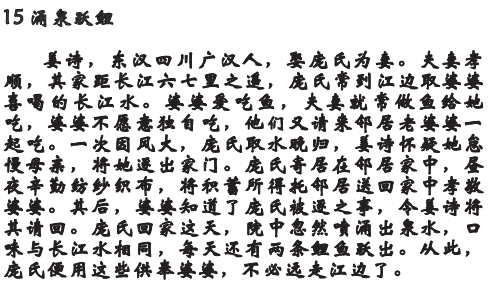 15 涌泉跃鲤
姜诗，东汉四川广汉人，娶庞氏为妻。夫妻孝
顺，其家距长江六七里之遥，庞氏常到江边取婆婆
喜喝的长江水。婆婆爱吃鱼，夫妻就常做鱼给她
吃，婆婆不愿意独自吃，他们又请来邻居老婆婆一
起吃。一次因风大，庞氏取水晚归，姜诗怀疑她怠
慢母亲，将她逐出家门。庞氏寄居在邻居家中，昼
夜辛勤纺纱织布，将积蓄所得托邻居送回家中孝敬
婆婆。其后，婆婆知道了庞氏被逐之事，令姜诗将
其请回。庞氏回家这天，院中忽然喷涌出泉水，口
味与长江水相同，每天还有两条鲤鱼跃出。从此，
庞氏便用这些供奉婆婆，不必远走江边了。